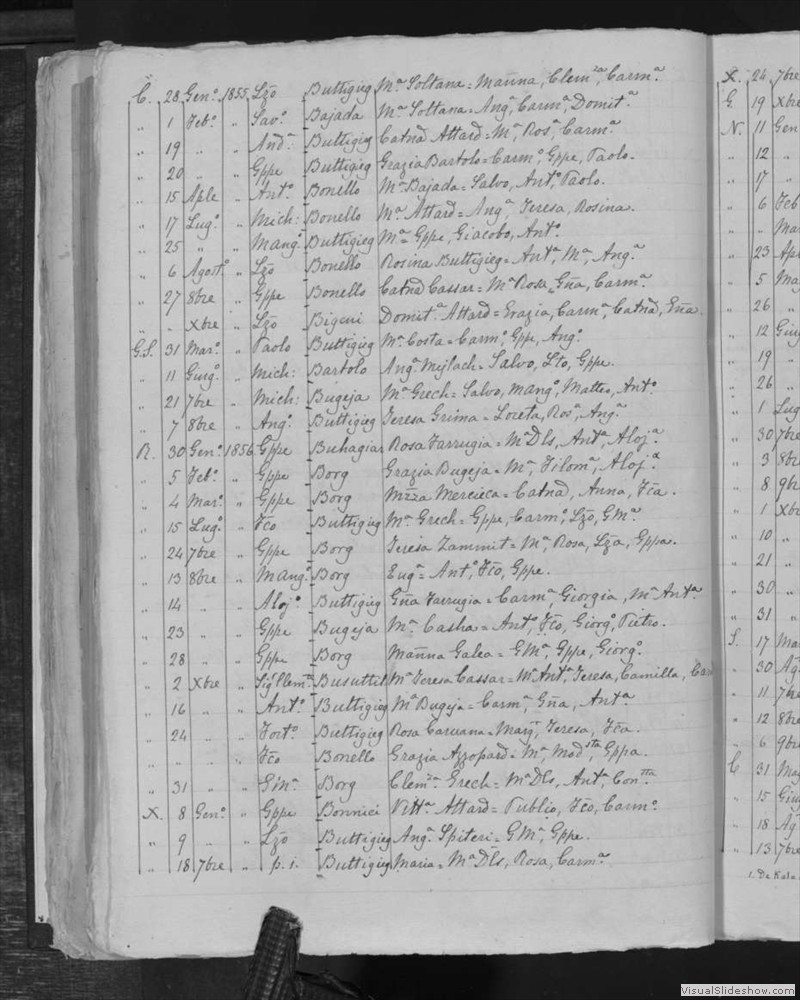 C. 28 Genº 1855 Lzo Buttigieg Mª Soltana = Manna, Clemzª, Carmª.
„ 1 Febº „ Savº Bajada Mª Soltana = Angª, Carmª, Domitª.
„ 19 „ „ Andª Buttigieg Catnd Attard = Mª, Rosª, Carmª.
„ 20 „ „ Gppe Buttigieg Grazia Bartolo = Carmº, Gppe, Paolo.
„ 15 Aple „ Antº Bonello Mª Bajada = Salvo, Antº, Paolo.
„ 17 Lugº „ Mich: Bonello Mª Attard = Angª, Teresa, Rosina.
„ 25 „ „ Mangº Buttigieg Mª = Gppe, Giacobo, Antº.
„ 6 Agostº „ Lzo Bonello Rosina Buttigieg = Antª, Mª, Angª.
„ 27 8bre „ Gppe Bonello Catnd Cassar = Mª Rosa, Gña, Carmª.
„ „ Xbre „ Lzo Bigeni Domitª Attard = Grazia, Carmª, Catnd, Eña.
G.S. 31 Marº „ Paolo Buttigieg Mª Costa = Carmº, Gppe, Angº.
„ 11 Giugº „ Mich: Bartolo Angª Mifsach = Salvo, Lto, Gppe.
„ 21 7bre „ Mich: Bugeja Mª Grech = Salvo, Mangº, Matteo, Antº.
„ 7 8bre „ Angº Buttigieg Teresa Grima = Loreta, Rosª, Angª
R. 30 Genº 1856 Gppe Buhagiar Rosa Farrugia = Mª Dls, Antª, Alojª.
„ 5 Febº „ Gppe Borg Grazia Bugeja = Mª, Filomª, Alojª
„ 4 Marº „ Gppe Borg Mzza Mercieca = Catnd, Anna, Fca.
„ 15 Lugº „ Fco Buttigieg Mª Grech = Gppe, Carmº, Lzo, GMª.
„ 24 7bre „ Gppe Borg Teresa Zammit = Mª, Rosa, Lza, Gppa.
„ 13 8bre „ Mangº Borg Eugª = Antº, Fco, Gppe.
„ 14 „ „ Alojº Buttigieg Gña Farrugia = Carmª, Giorgia, Mª Antª
„ 23 „ „ Gppe Bugeja Mª Casha = Antº, Fco, Giorgº, Pietro.
„ 28 „ „ Gppe Borg Manna Galea = GMª, Gppe, Giorgº.
„ 2 Xbre „ Busuttil Mª Teresa Cassar = Mª Antª, Teresa, Camilla,
„ 16 „ „ Antº Buttigieg Mª Bugeja = Carmª, Gña, Antª.
„ 24 „ „ Fortº Buttigieg Rosa Caruana = Margª, Teresa, Fca.
„ „ „ „ Fco Bonello Grazia Azzopard = Mª, Modsta, Gppa.
„ 31 „ „ GMª Borg Clemza Grech = Mª Dls, Antª, Contta
X. 8 Genº „ Gppe Bonnici Vittª Attard = Publio, Fco, Carmº.
„ 9 „ „ Lzo Buttigieg Angª Spiteri = GMª, Gppe.
„ 18 7bre „ p.i. Buttigieg Maria = Mª Dls, Rosa, Carmª
X. 24 7bre
G. 19 Xbre
N. 11 Gen
„ 12 „
„ 17 „
„ 6 Feb
„ „ Mar
„ 23 Apl
„ 5 Mag
„ 26 „
„ 12 Giug
„ 19 „
„ 26 „
„ 1 Lug
„ 30 7bre
„ 3 8bre
„ 8 9bre
„ 1 Xbre
„ 10 „
„ 21 „
„ 30 „
„ 31 „
S. 17 Mar
„ 30 Ag
„ 11 7bre
„ 12 8bre
„ 6 9bre
C 31 Mag
„ 15 Giug
„ 18 Ag
„ 13 7bre
VisualSlideshow.com